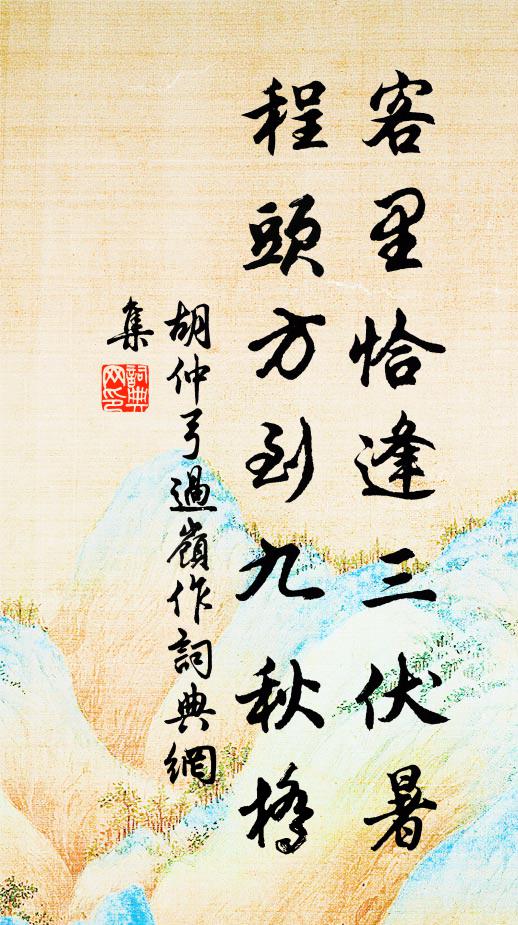 客里恰逢三伏暑
程頭方到九秋橋
胡仲弓過嶺作詞典網
集
詞典網印